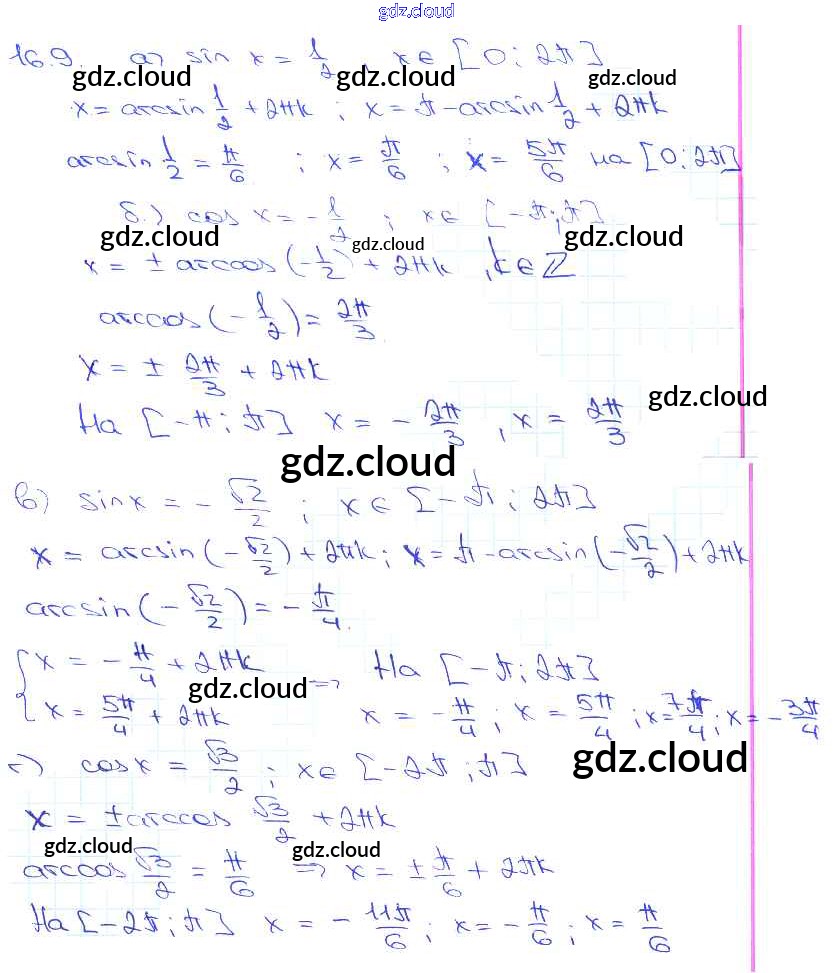 gdz.cloud
16.9. а) sin x = 1/2, x ∈ [0; 2π]
gdz.cloud gdz.cloud gdz.cloud
x = arcsin 1/2 + 2πk; x = π - arcsin 1/2 + 2πk
arcsin 1/2 = π/6; x = π/6; x = 5π/6 на [0; 2π]
б.) cos x = -1/2; x ∈ [-π; π]
gdz.cloud gdz.cloud gdz.cloud
x = ± arccos(-1/2) + 2πk, k ∈ Z
arccos(-1/2) = 2π/3
x = ± 2π/3 + 2πk
gdz.cloud
На [-π; π] x = -2π/3, x = 2π/3
gdz.cloud
в) sin x = -√2/2; x ∈ [-π; 2π]
x = arcsin(-√2/2) + 2πk; x = π - arcsin(-√2/2) + 2πk
arcsin(-√2/2) = -π/4.
{ x = -π/4 + 2πk На [-π; 2π]
gdz.cloud
x = 5π/4 + 2πk => x = -π/4; x = 5π/4; x = 7π/4; x = -3π/4
г) cos x = √3/2; x ∈ [-2π; π]
gdz.cloud
x = ± arccos √3/2 + 2πk
gdz.cloud gdz.cloud
arccos √3/2 = π/6 => x = ± π/6 + 2πk
На [-2π; π] x = -11π/6; x = -π/6; x = π/6